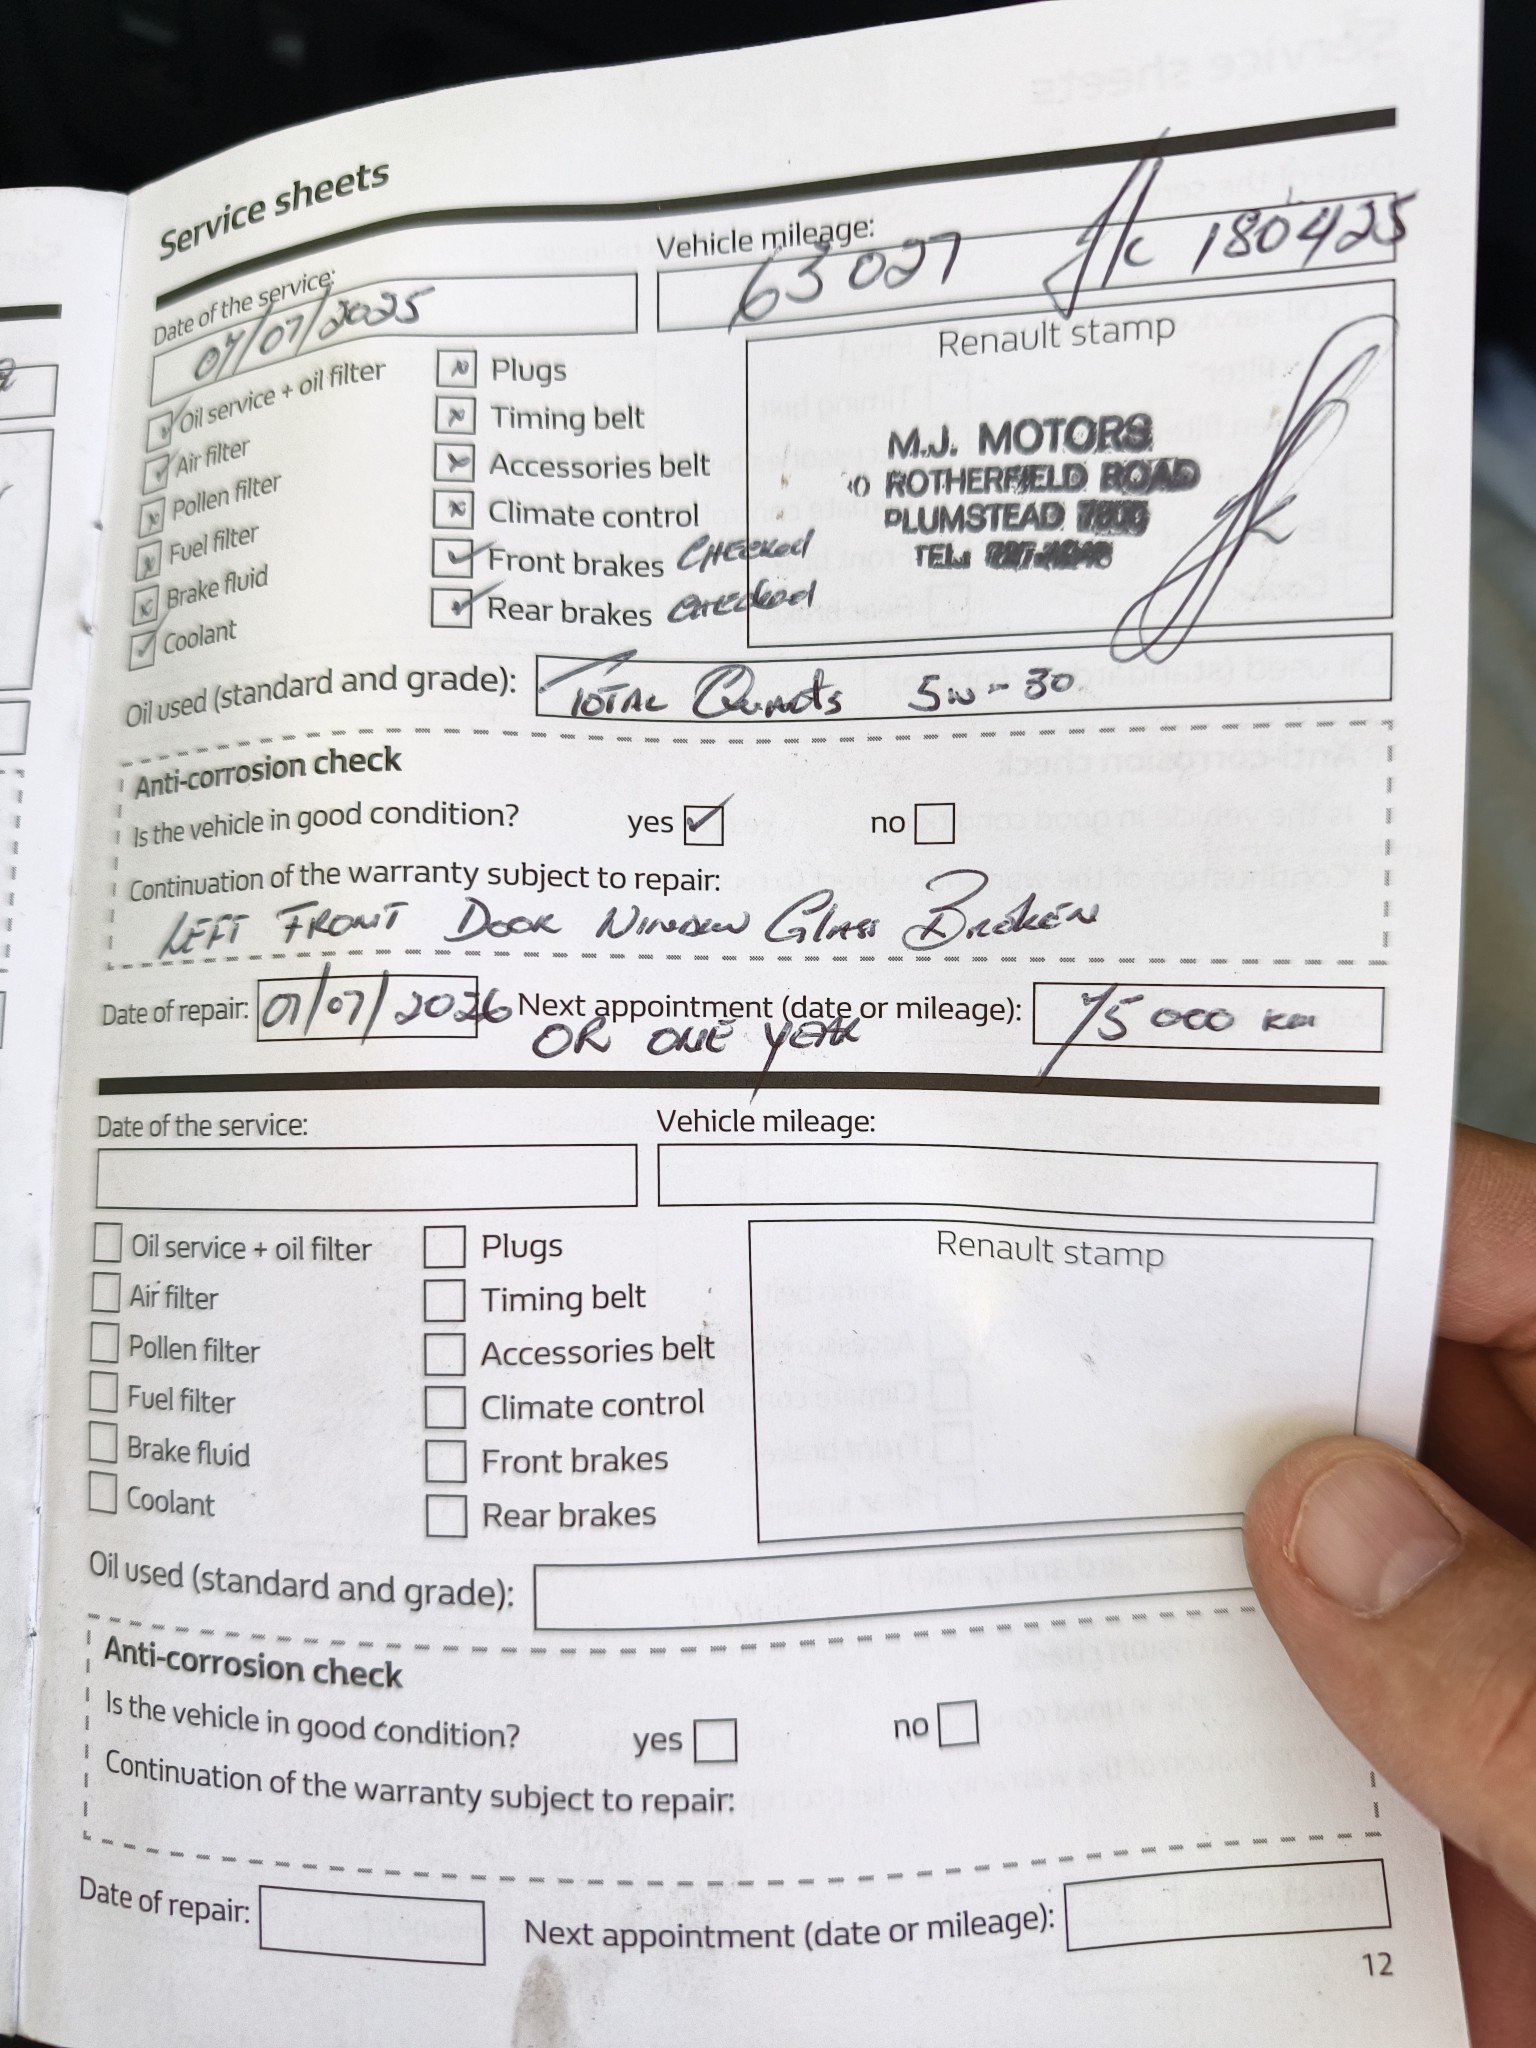 Service sheets
Date of the service:
07/07/2025
Vehicle mileage:
63027 J/c 180425
Oil service + oil filter
Air filter
Pollen filter
Fuel filter
Brake fluid
Coolant
Plugs
Timing belt
Accessories belt
Climate control
Front brakes CHECKED
Rear brakes CHECKED
Renault stamp
M.J. MOTORS
10 ROTHERFIELD ROAD
PLUMSTEAD
TEL:
Oil used (standard and grade): TOTAL Quartz 5W-30
Anti-corrosion check
Is the vehicle in good condition? yes no
Continuation of the warranty subject to repair:
LEFT FRONT DOOR WINDOW GLASS BROKEN
Date of repair: 07/07/2026 Next appointment (date or mileage): 75 000 km
OR ONE YEAR
Date of the service:
Vehicle mileage:
Oil service + oil filter
Air filter
Pollen filter
Fuel filter
Brake fluid
Coolant
Plugs
Timing belt
Accessories belt
Climate control
Front brakes
Rear brakes
Renault stamp
Oil used (standard and grade):
Anti-corrosion check
Is the vehicle in good condition? yes no
Continuation of the warranty subject to repair:
Date of repair: Next appointment (date or mileage):
12